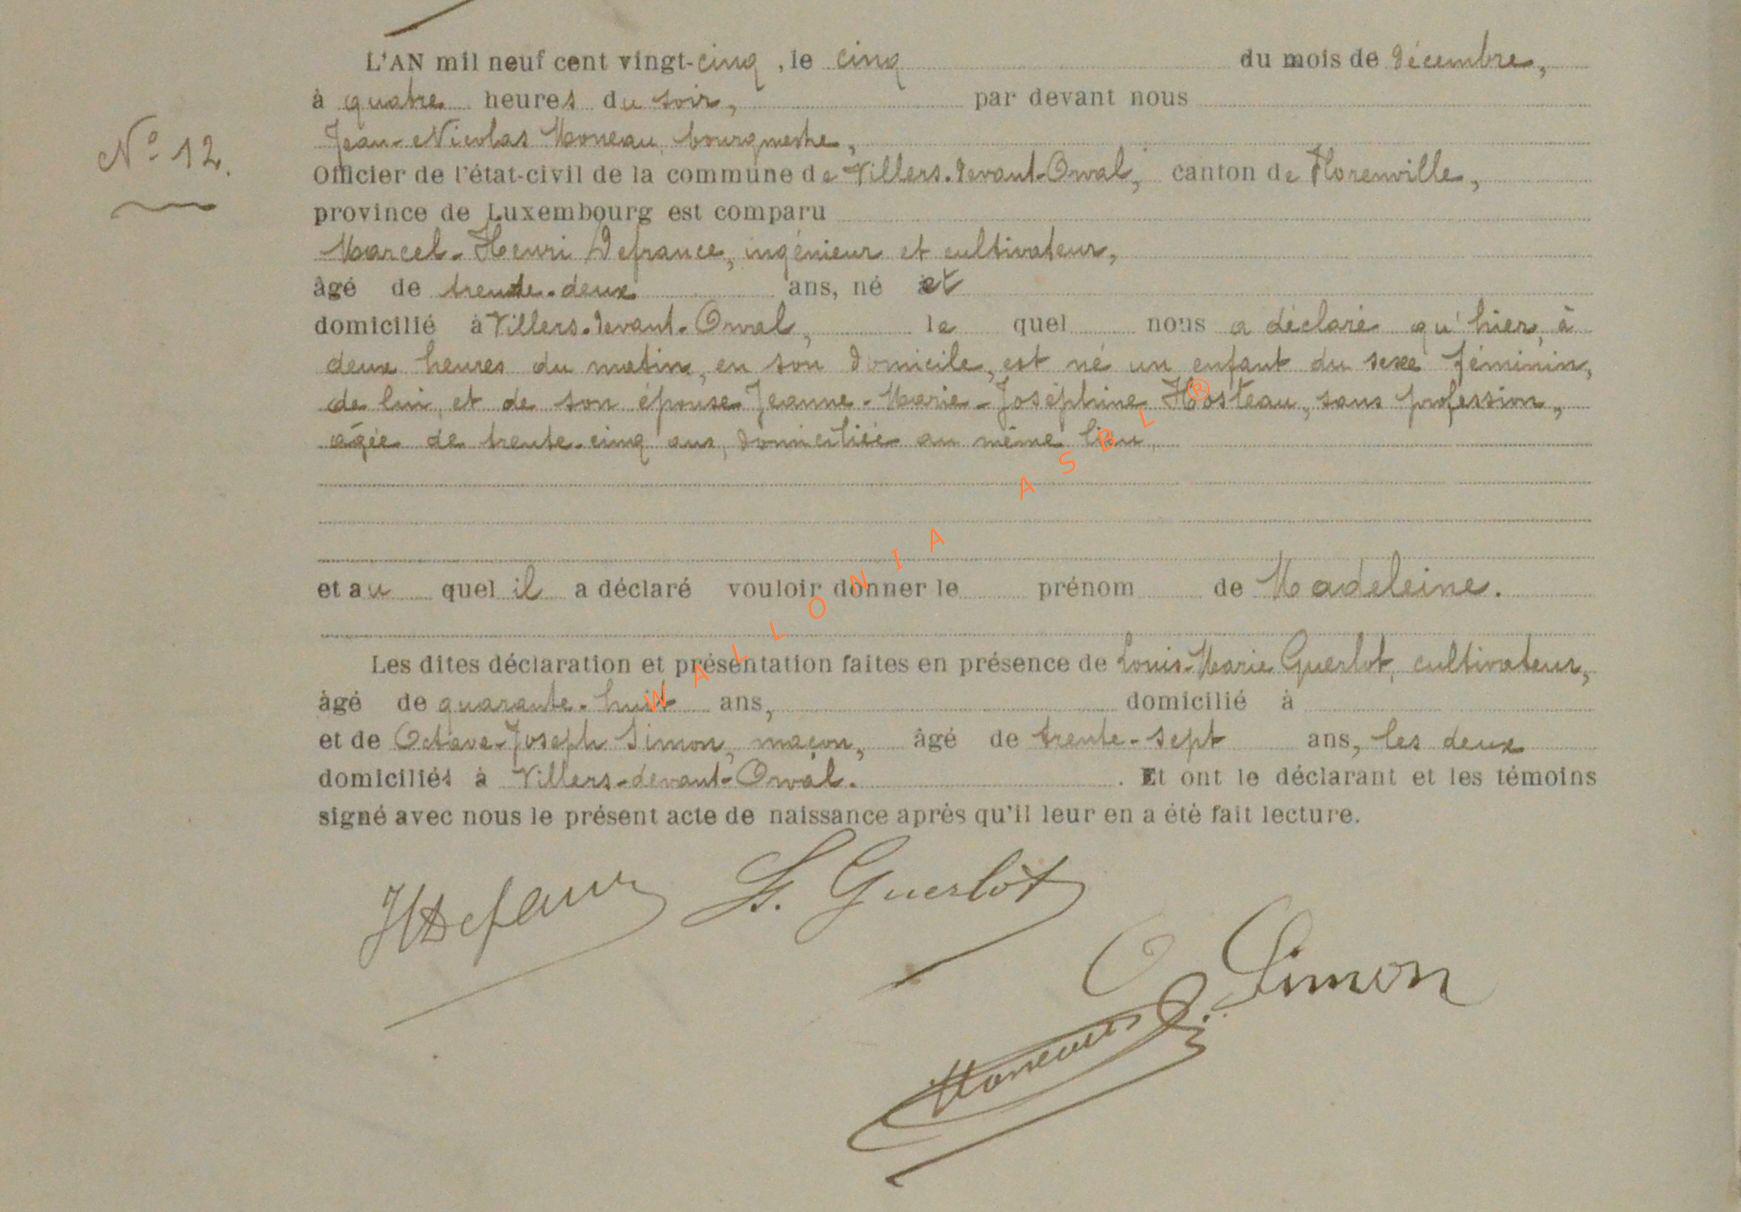 L'AN mil neuf cent vingt-cinq, le cinq du mois de décembre,
à quatre heures du soir, par devant nous
Jean-Nicolas Moneau, bourgmestre,
N° 12.
Officier de l'état-civil de la commune de Villers-devant-Orval, canton de Florenville,
province de Luxembourg est comparu
Marcel-Henri Defrance, ingénieur et cultivateur,
âgé de trente-deux ans, né et
domicilié à Villers-devant-Orval, le quel nous a déclaré qu'hier, à
deux heures du matin, en son domicile, est né un enfant du sexe féminin,
de lui, et de son épouse Jeanne-Marie-Joséphine Hosteau, sans profession,
âgée de trente-cinq ans, domiciliée au même lieu,
et au quel il a déclaré vouloir donner le prénom de Madeleine.
Les dites déclaration et présentation faites en présence de Louis-Marie Guerlot, cultivateur,
âgé de quarante-huit ans, domicilié à
et de Octave-Joseph Simon, maçon, âgé de trente-sept ans, les deux
domiciliés à Villers-devant-Orval. Et ont le déclarant et les témoins
signé avec nous le présent acte de naissance après qu'il leur en a été fait lecture.
L. Guerlot
O. Simon
Moneau
WALLONIA ASBL ®